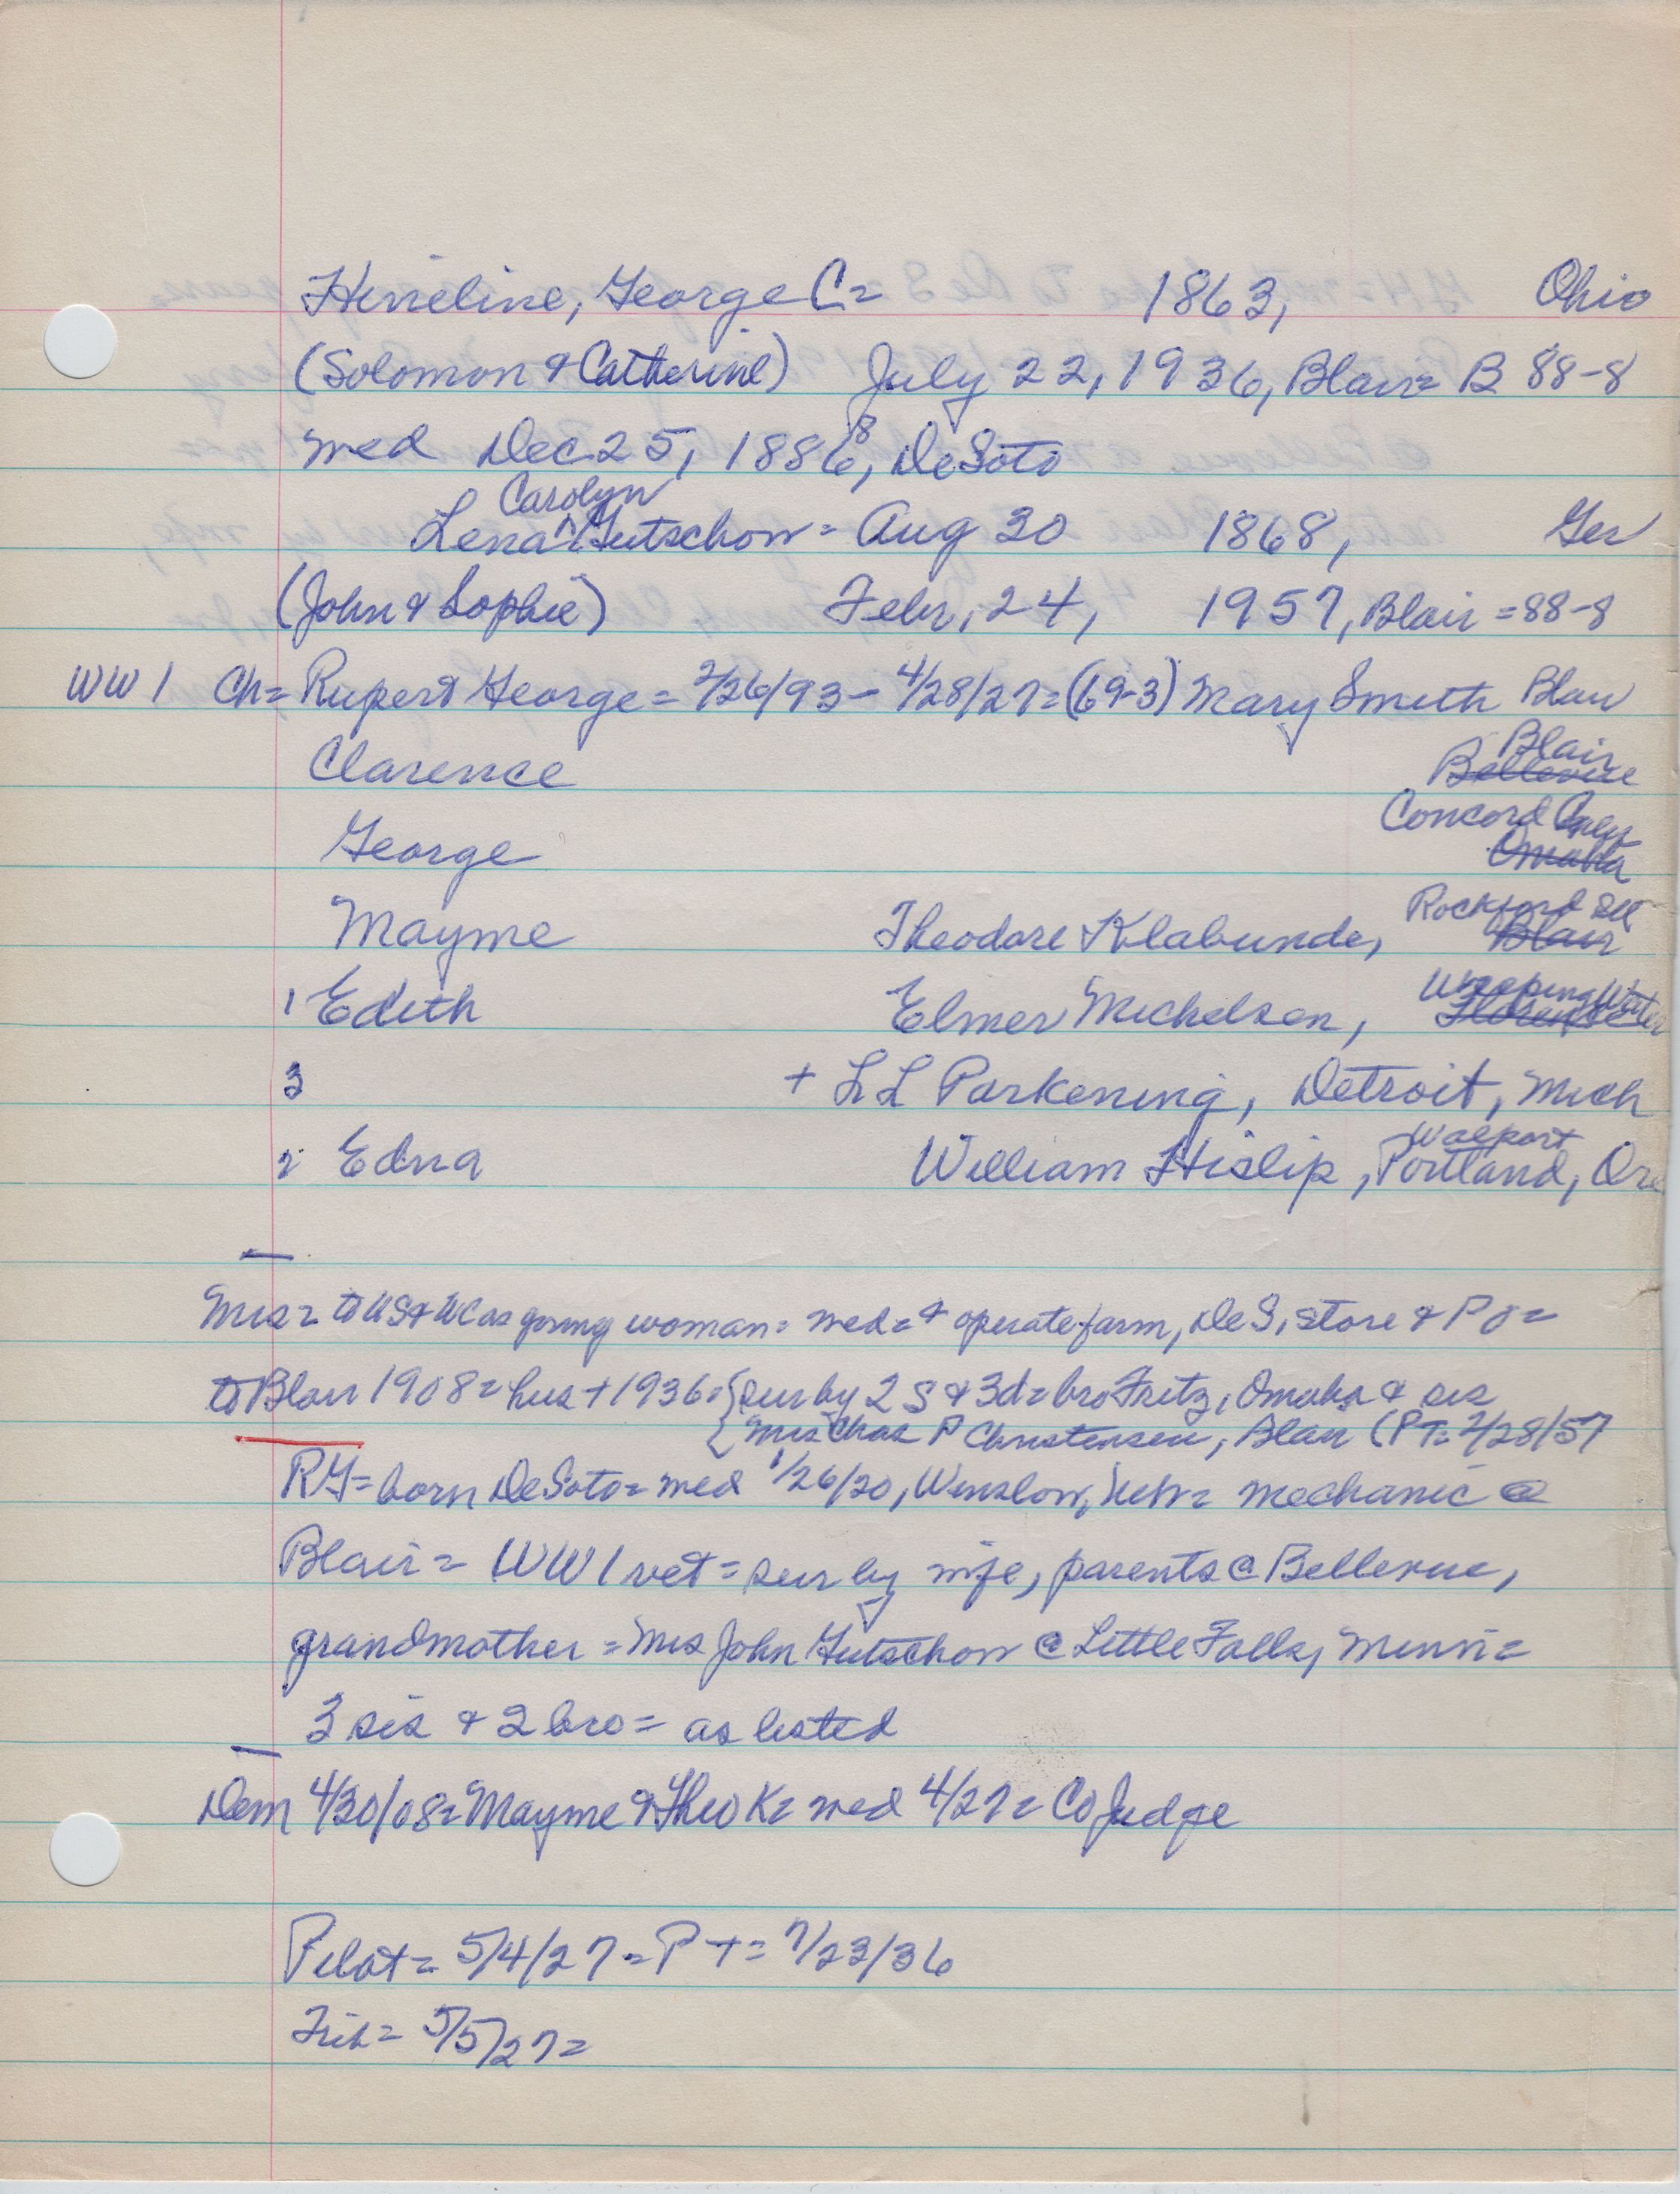 Hineline, George C= 1863, Ohio
(Solomon & Catherine) July 22, 1936, Blair= B 88-8
med Dec 25, 1886, DeSoto
8
Carolyn
Lena ^ Gutschow= Aug 30 1868, Ger
(John & Sophie) Febr, 24, 1957, Blair = 88-8
WW1 Ch= Rupert George = 2/26/93- 4/28/27=(69-3) Mary Smith Blair
Blair
Clarence Bellevue
Concord
George Omaha
Rockford Ill
Mayme Theodore Klabunde, Blair
Weeping Water
1 Edith Elmer Michelsen, Florence
3 + L L Parkening, Detroit, Mich
Walport
2 Edna William Hislip, Portland, Ore
Mrs= to US & WC as young woman= med= & operate farm, DeS, store & PO=
to Blair 1908= hus + 1936= {sur by 2 S & 3d= bro Fritz, Omaha & sis
{Mrs Chas P Christensen, Blair (PT= 2/28/57
RG= born DeSoto= med 1/26/20, Winslow, Neb= mechanic @
Blair= WW1 vet= sur by wife, parents @ Bellevue,
grandmother = Mrs John Gutschow @ Little Falls, Minn=
3 sis & 2 bro= as listed
Dem 4/30/08= Mayme & Theo K= med 4/27= Co Judge
Pilot= 5/4/27= P T= 7/23/36
Trib= 5/5/27=